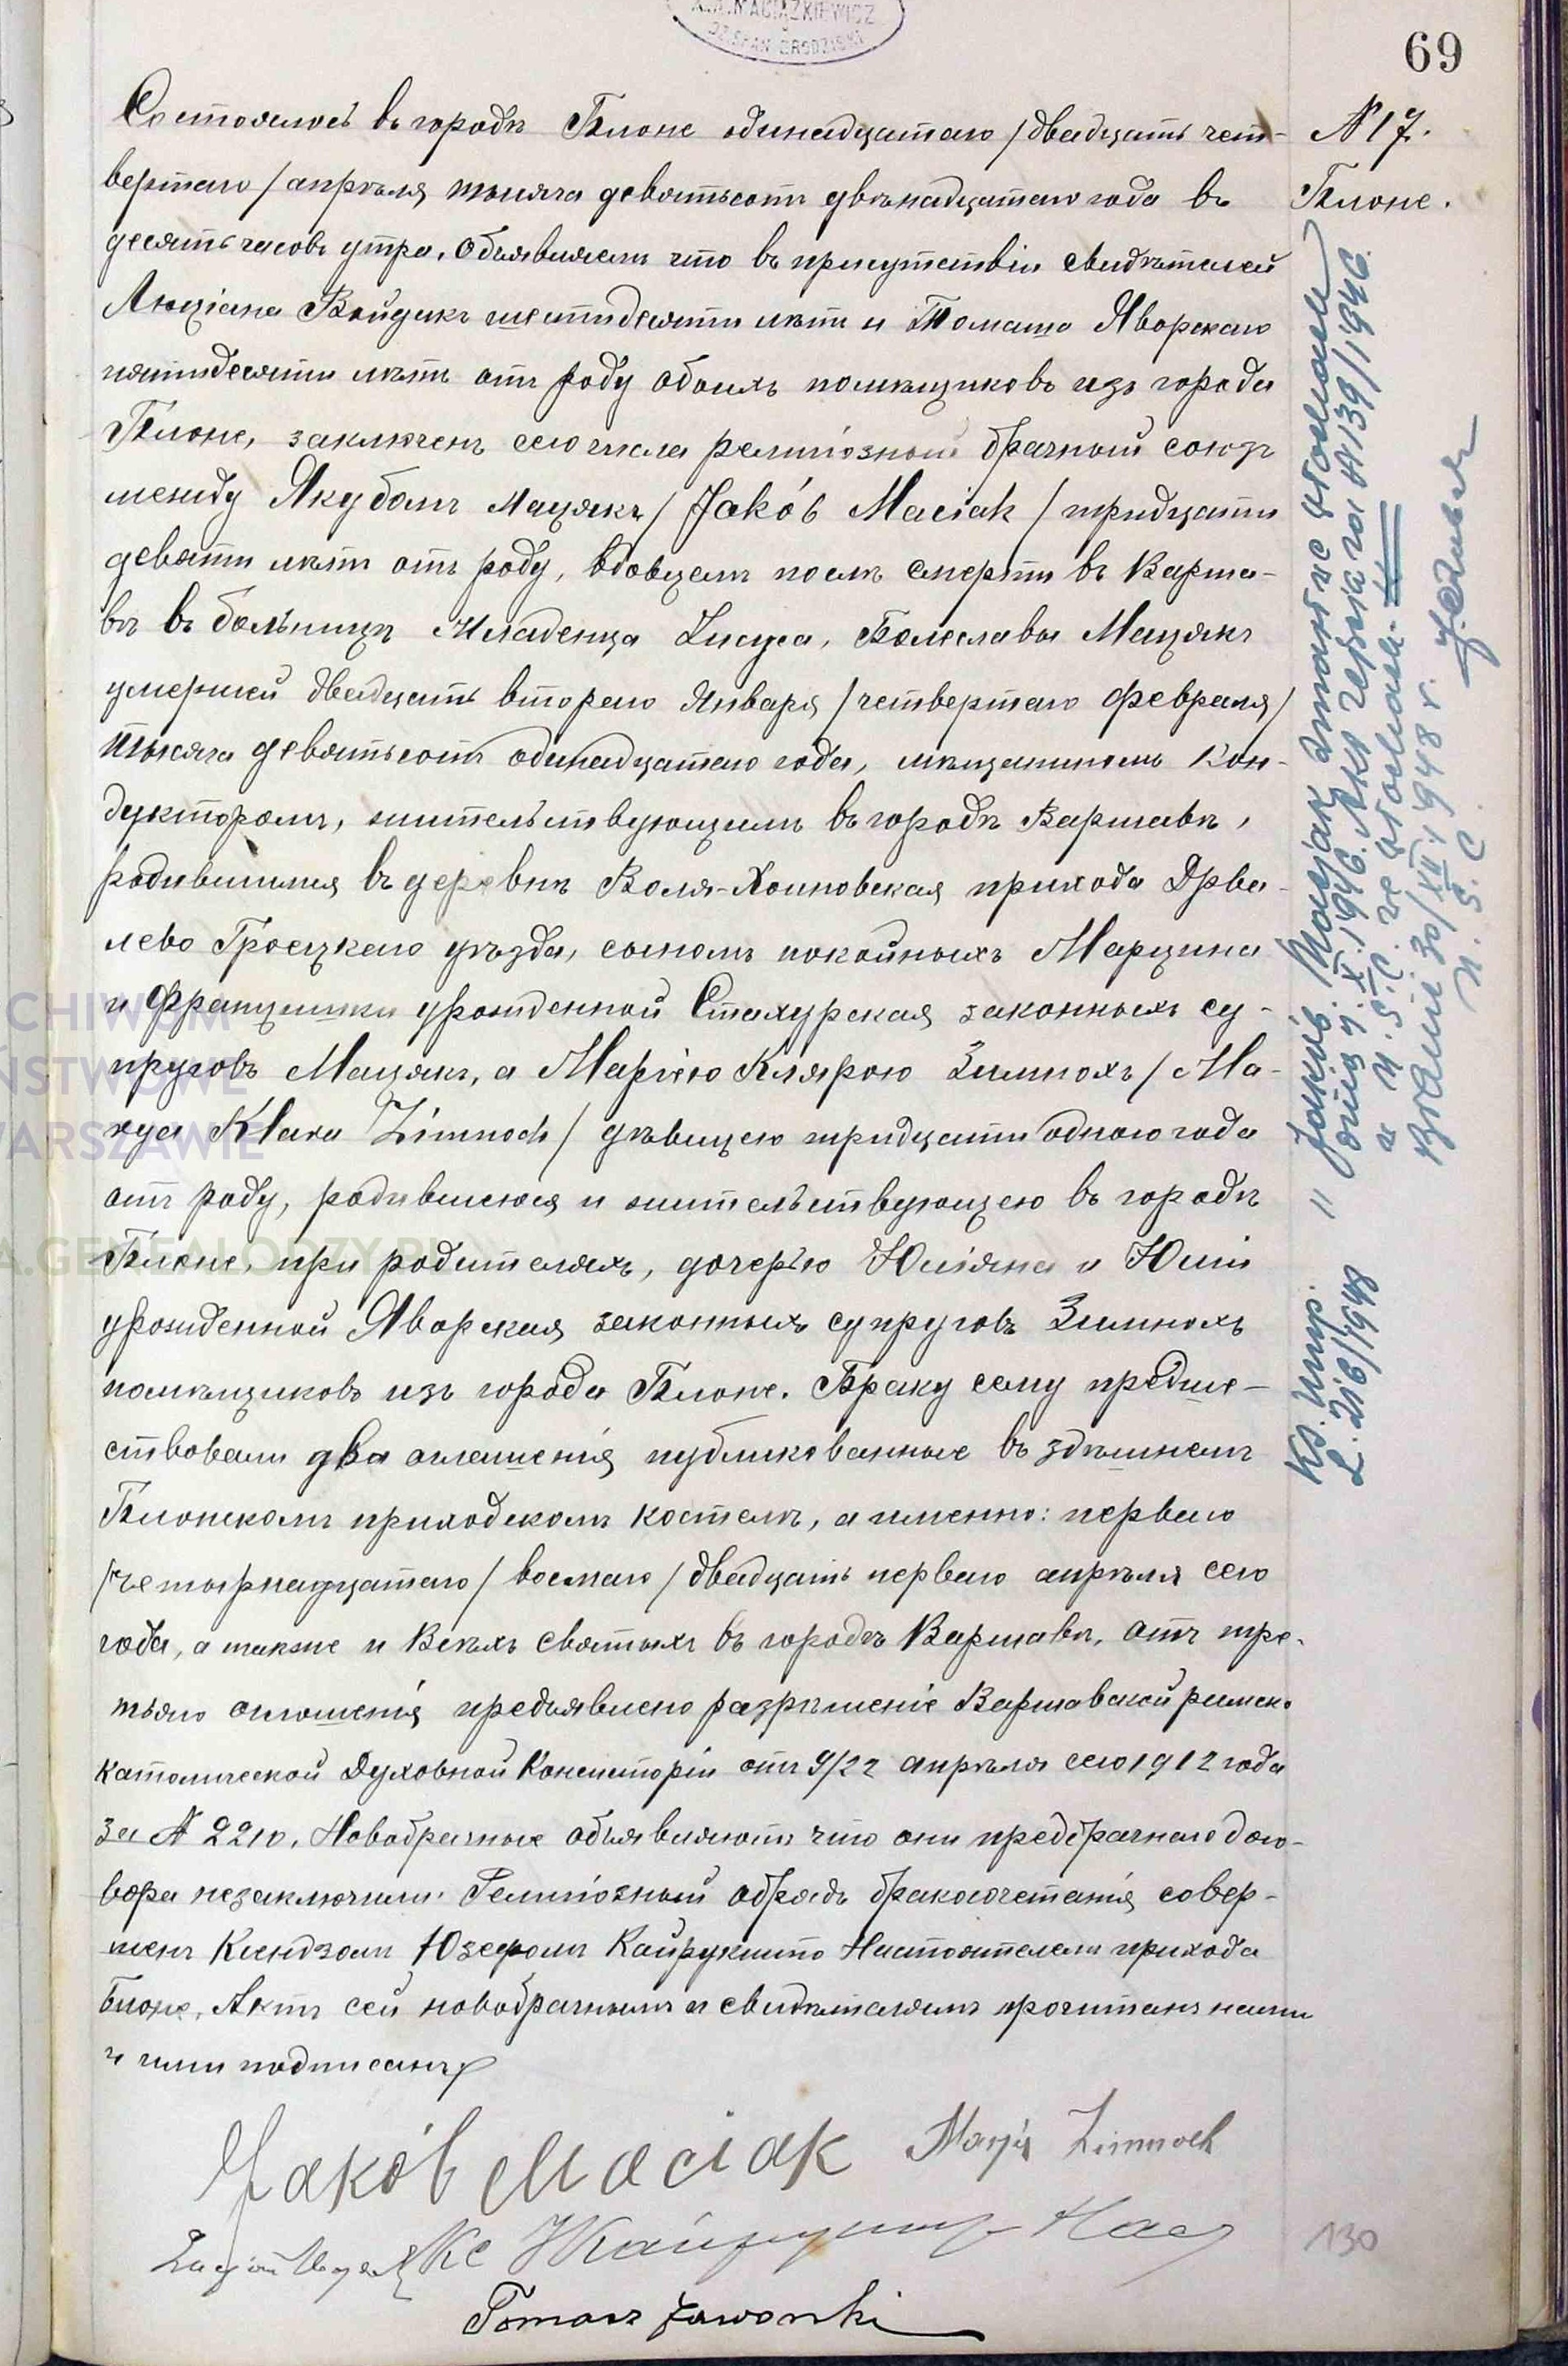 69
№ 17.
Блоне.
Состоялось въ городѣ Блоне одинадцатаго /двадцать чет-
вертаго/ апрѣля тысяча девятьсотъ двѣнадцатаго года въ
десять часовъ утра. Объявляемъ что въ присутствіи свидѣтелей
Люціана Войдакъ шестидесяти лѣтъ и Томаша Яворскаго
пятидесяти лѣтъ отъ роду обоихъ помѣщиковъ изъ города
Блоне, заключенъ сего числа религіозный брачный союзъ
между Якубомъ Мацякъ /Jakób Maciak/ тридцати
девяти лѣтъ отъ роду, вдовцемъ послѣ смерти въ Варша-
вѣ въ больницѣ Младенца Іисуса, Болеславы Мацякъ
умершей двадцать второго Января /четвертаго февраля/
тысяча девятьсотъ одинадцатаго года, мѣщаниномъ кон-
дукторомъ, жительствующимъ въ городѣ Варшавѣ,
родившимся въ деревнѣ Воля-Хойновская прихода Дрва-
лево Гроецкаго уѣзда, сыномъ покойныхъ Марцина
и Францишки урожденной Стахурская законныхъ су-
пруговъ Мацякъ, а Маріею Клярою Зимнохъ /Ma-
rya Klara Zimnoch/ дѣвицею тридцати одного года
отъ роду, родившеюся и жительствующею въ городѣ
Блоне, при родителяхъ, дочерью Юліяна и Юліи
урожденной Яворская законныхъ супруговъ Зимнохъ
помѣщиковъ изъ города Блоне. Браку сему предше-
ствовали два оглашенія публикованные въ здѣшнемъ
Блонскомъ приходскомъ костелѣ, а именно: перваго
/четырнадцатаго/ восмаго /двадцать перваго апрѣля сего
года, а также и Всѣхъ Святыхъ въ городѣ Варшавѣ, отъ тре-
тьяго оглашенія предъявлено разрѣшеніе Варшавской римско
католической Духовной Консисторіи отъ 9/22 апрѣля сего 1912 года
за № 2210. Новобрачные объявляютъ что они предбрачнаго дого-
вора незаключили. Религіозный обрядъ бракосочетанія совер-
шенъ Ксендзомъ Юзефомъ Кайрукшто Настоятелемъ прихода
Блоне. Актъ сей новобрачнымъ и свидѣтелямъ прочитанъ нами
и ими подписанъ
Jakób Maciak Marja Zimnoch
Кс Кайрукшто Нас
Tomasz Jaworski
130
" Jakób Maciak
X.1946. Akt №139/1946.
u. S.C.
30/XII 1948 r.
U. S. C.
L. 216/1948